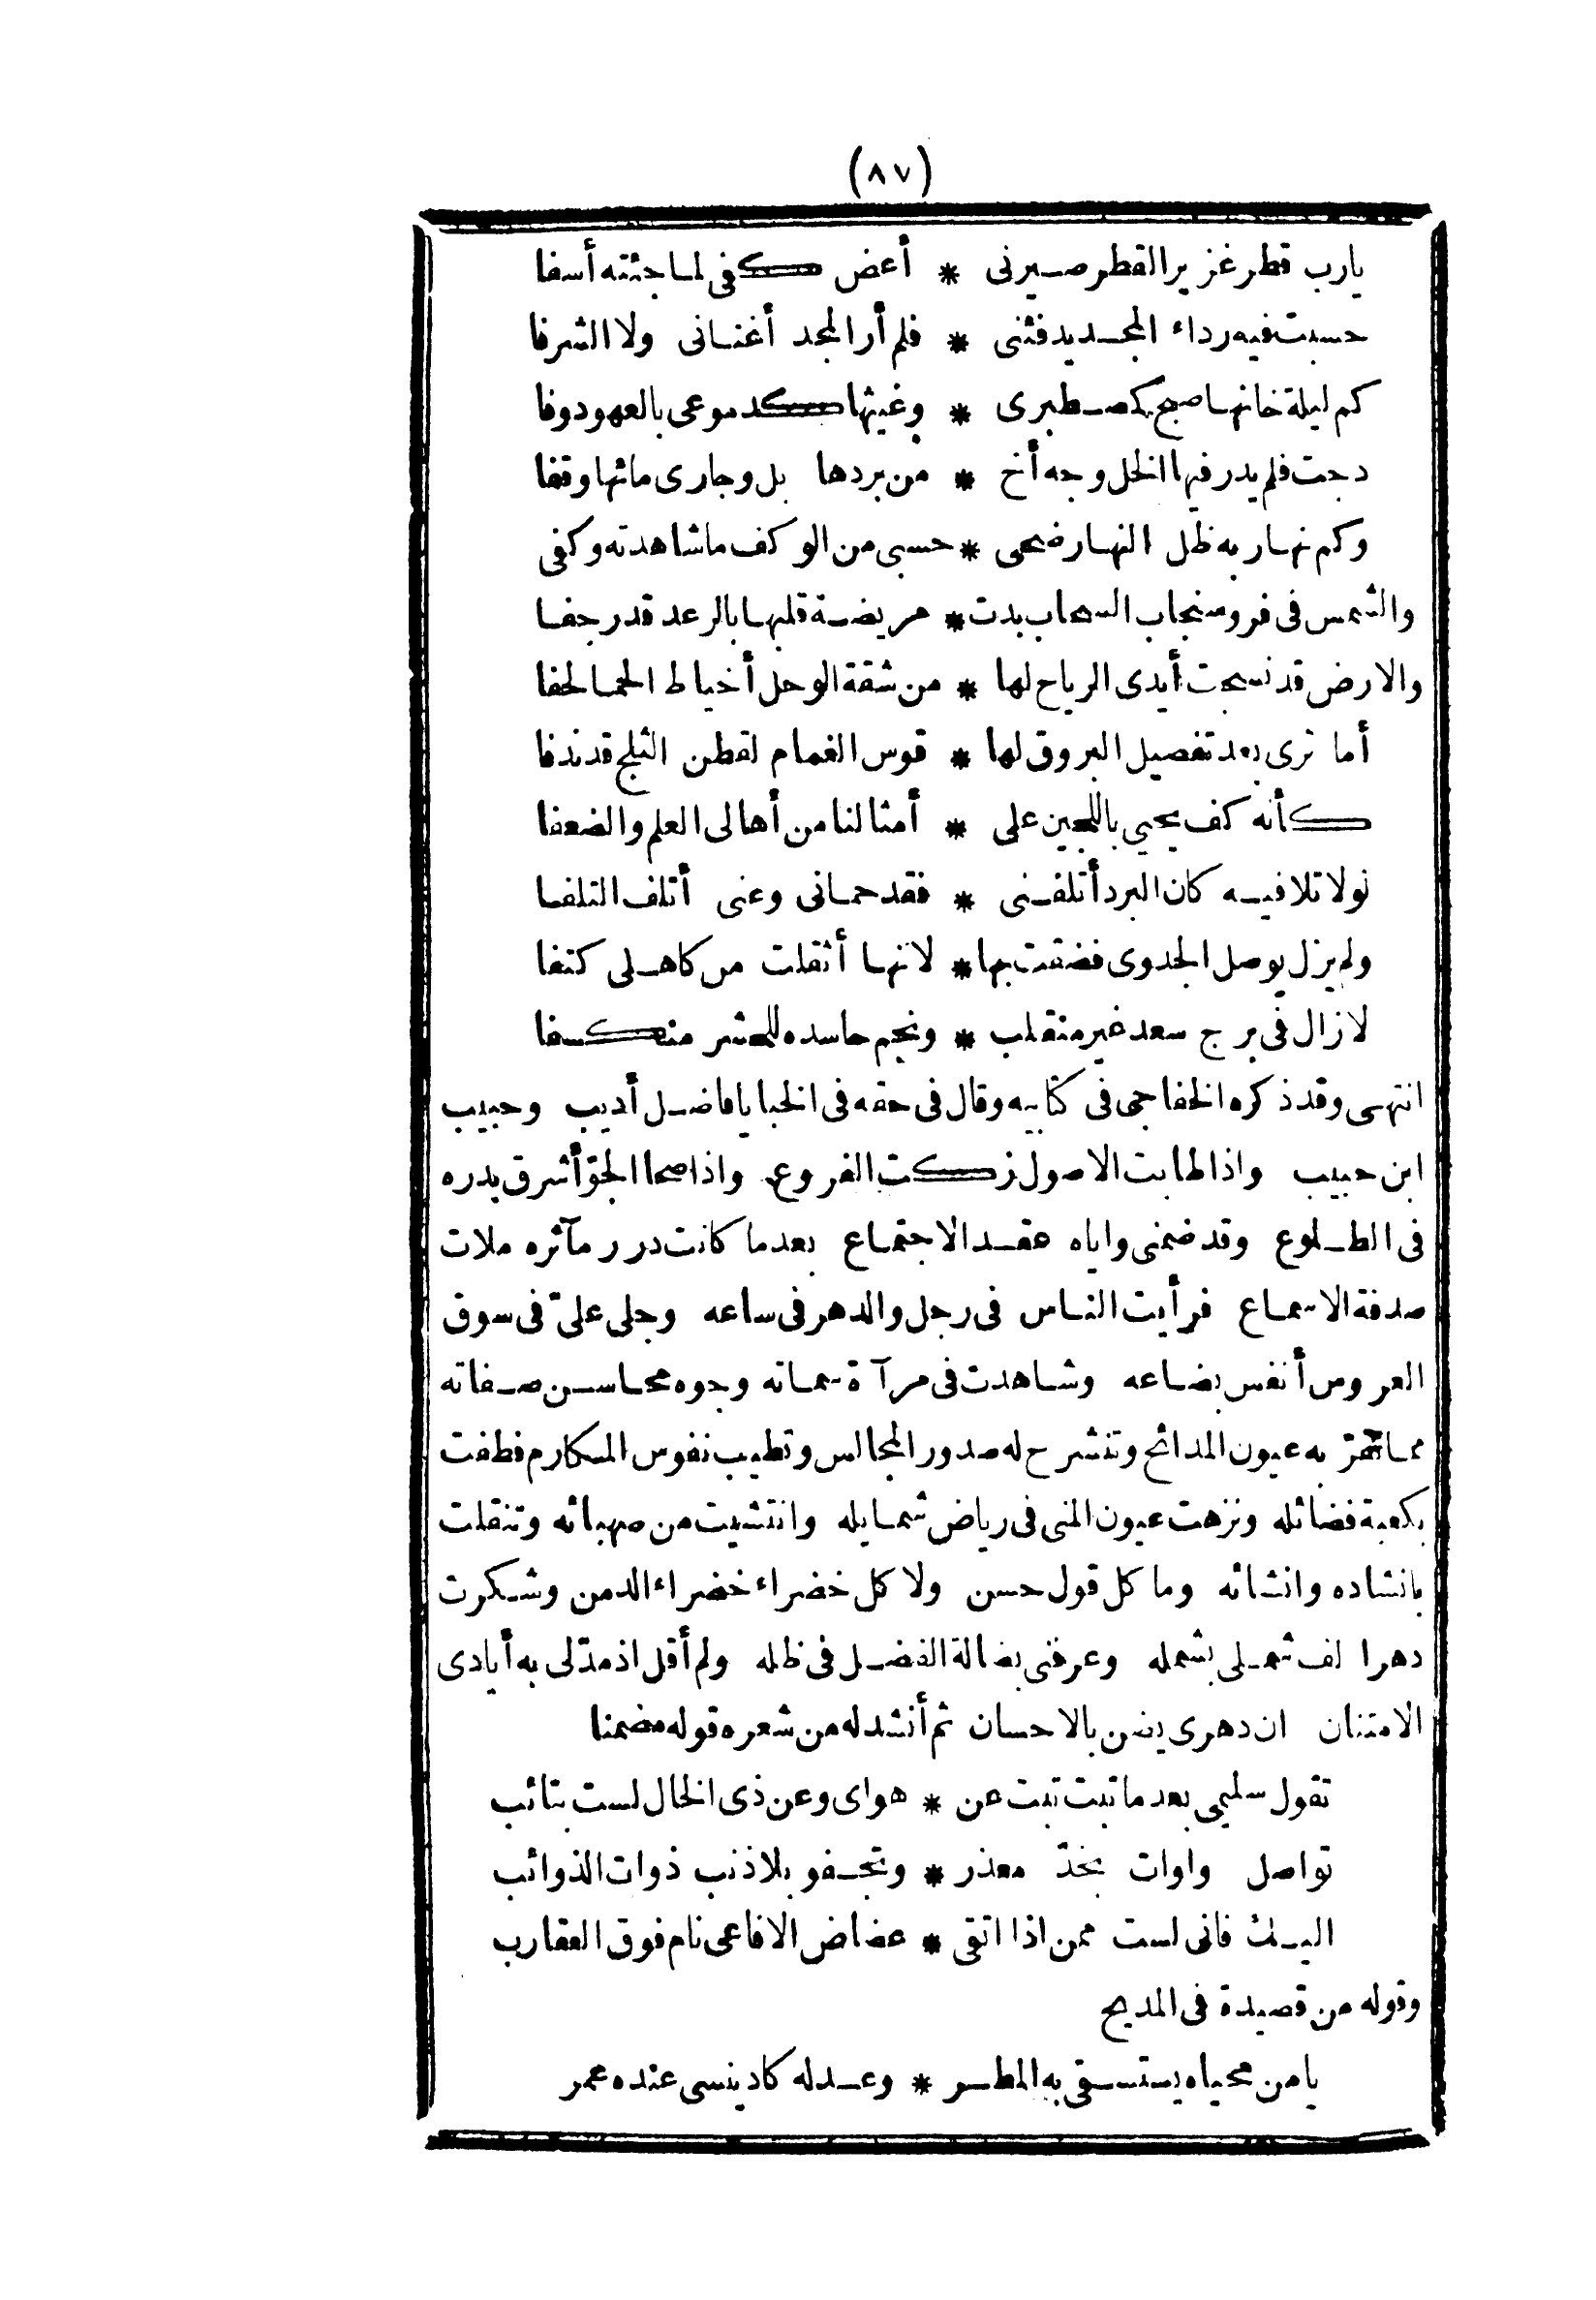 (٨٧)
يارب قطر غزير القطر صيرنى * أعض كفى لما جئته أسفا
حسبت فيه رداء المجد يدفئنى * فلم أر المجد أغنانى ولا الشرفا
كم ليلة خانها صبح كمصطبرى * وغيثها كدموعى بالعهود وفا
دجت فلم يدر فيها الخل وجه أخ * من بردها بل وجارى مائها وقفا
وكم نهار به ظل النهار ضحى * حسبى من الوكف ما شاهدته وكفى
والشمس فى فرو سنجاب السحاب بدت * مريضة قلبها بالرعد قد رجفا
والارض قد نسجت أيدى الرياح لها * من شقة الوحل أخياط الحمالحفا
أما ترى بعد تفصيل البروق لها * قوس الغمام لقطن الثلج قد ندفا
كأنه كف يحيى باللجين على * أمثالنا من أهالى العلم والضعفا
لولا تلافيه كان البرد أتلفنى * فقد حمانى وعنى أتلف التلفا
ولم يزل يوصل الجدوى فضقت بها * لانها أثقلت من كاهلى كتفا
لازال فى برج سعد غير منقلب * ونجم حاسده للحشر منكسفا
انتهى وقد ذكره الخفاجى فى كتابيه وقال فى حقه فى الخبايا فاضل أديب وحبيب
ابن حبيب واذا طابت الاصول زكت الفروع واذا صحا الجوّ أشرق بدره
فى الطلوع وقد ضمنى واياه عقد الاجتماع بعدما كانت درر مآثره ملات
صدفة الاسماع فرأيت الناس فى رجل والدهر فى ساعه وجلى علىّ فى سوق
العروس أنفس بضاعه وشاهدت فى مرآة سماته وجوه محاسن صفاته
مما تقرّ به عيون المدائح وتنشرح له صدور المجالس وتطيب نفوس المكارم فطفت
بكعبة فضائله ونزهت عيون المنى فى رياض شمايله وانتشيت من صهبائه وتنقلت
بانشاده وانشائه وما كل قول حسن ولا كل خضراء خضراء الدمن وشكرت
دهرا لف شملى بشمله وعرفنى بضالة الفضل فى ظله ولم أقل اذ مدّلى به أيادى
الامتنان ان دهرى يضن بالاحسان ثم أنشد له من شعره قوله مضمنا
تقول سليمى بعد ما تبت تبت عن * هواى وعن ذى الخال لست بتائب
تواصل واوات بخدّ معذر * وتجفو بلا ذنب ذوات الذوائب
اليك فانى لست ممن اذا اتقى * عضاض الافاعى نام فوق العقارب
وقوله من قصيدة فى المديح
يا من محياه يستسقى به المطر * وعدله كاد ينسى عنده عمر